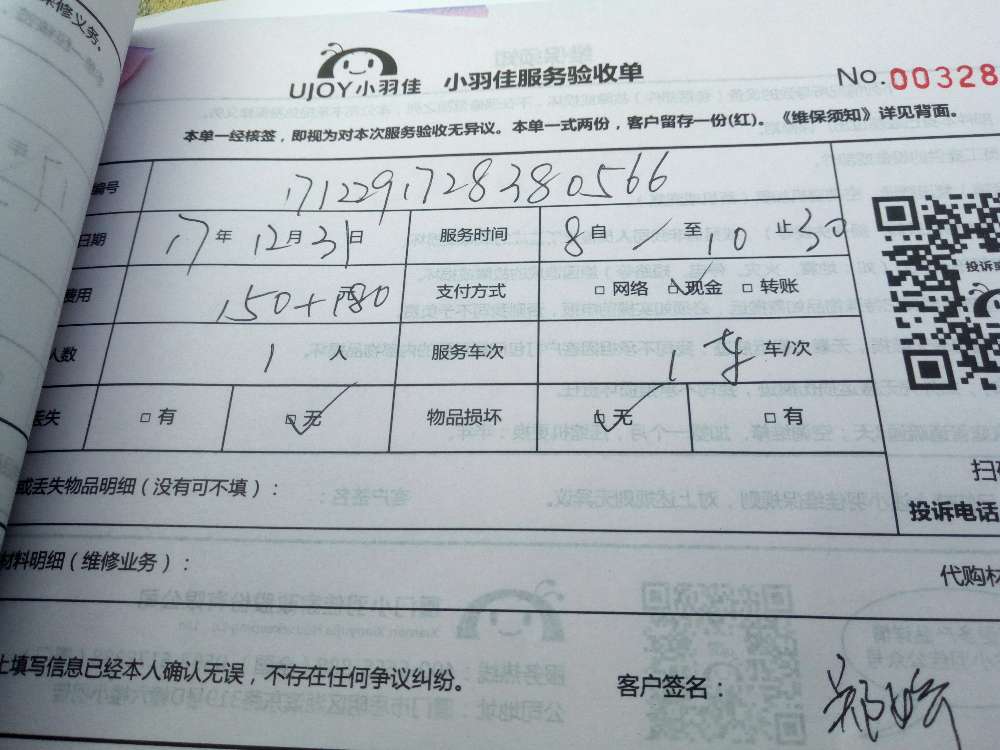 修义务、
UJOY小羽佳 小羽佳服务验收单 No.00328
本单一经核签，即视为对本次服务验收无异议。本单一式两份，客户留存一份(红)。《维保须知》详见背面。
编号 1712291728380566
日期 17年 12月 31日 服务时间 8自 至 10 止30
费用 150+180 支付方式 □网络 □现金 □转账
人数 1 人 服务车次 1 车 车/次
丢失 □有 □无 物品损坏 □无 □有
投诉
扫
或丢失物品明细（没有可不填）：
投诉电话
材料明细（维修业务）： 代购材
上填写信息已经本人确认无误，不存在任何争议纠纷。
客户签名：